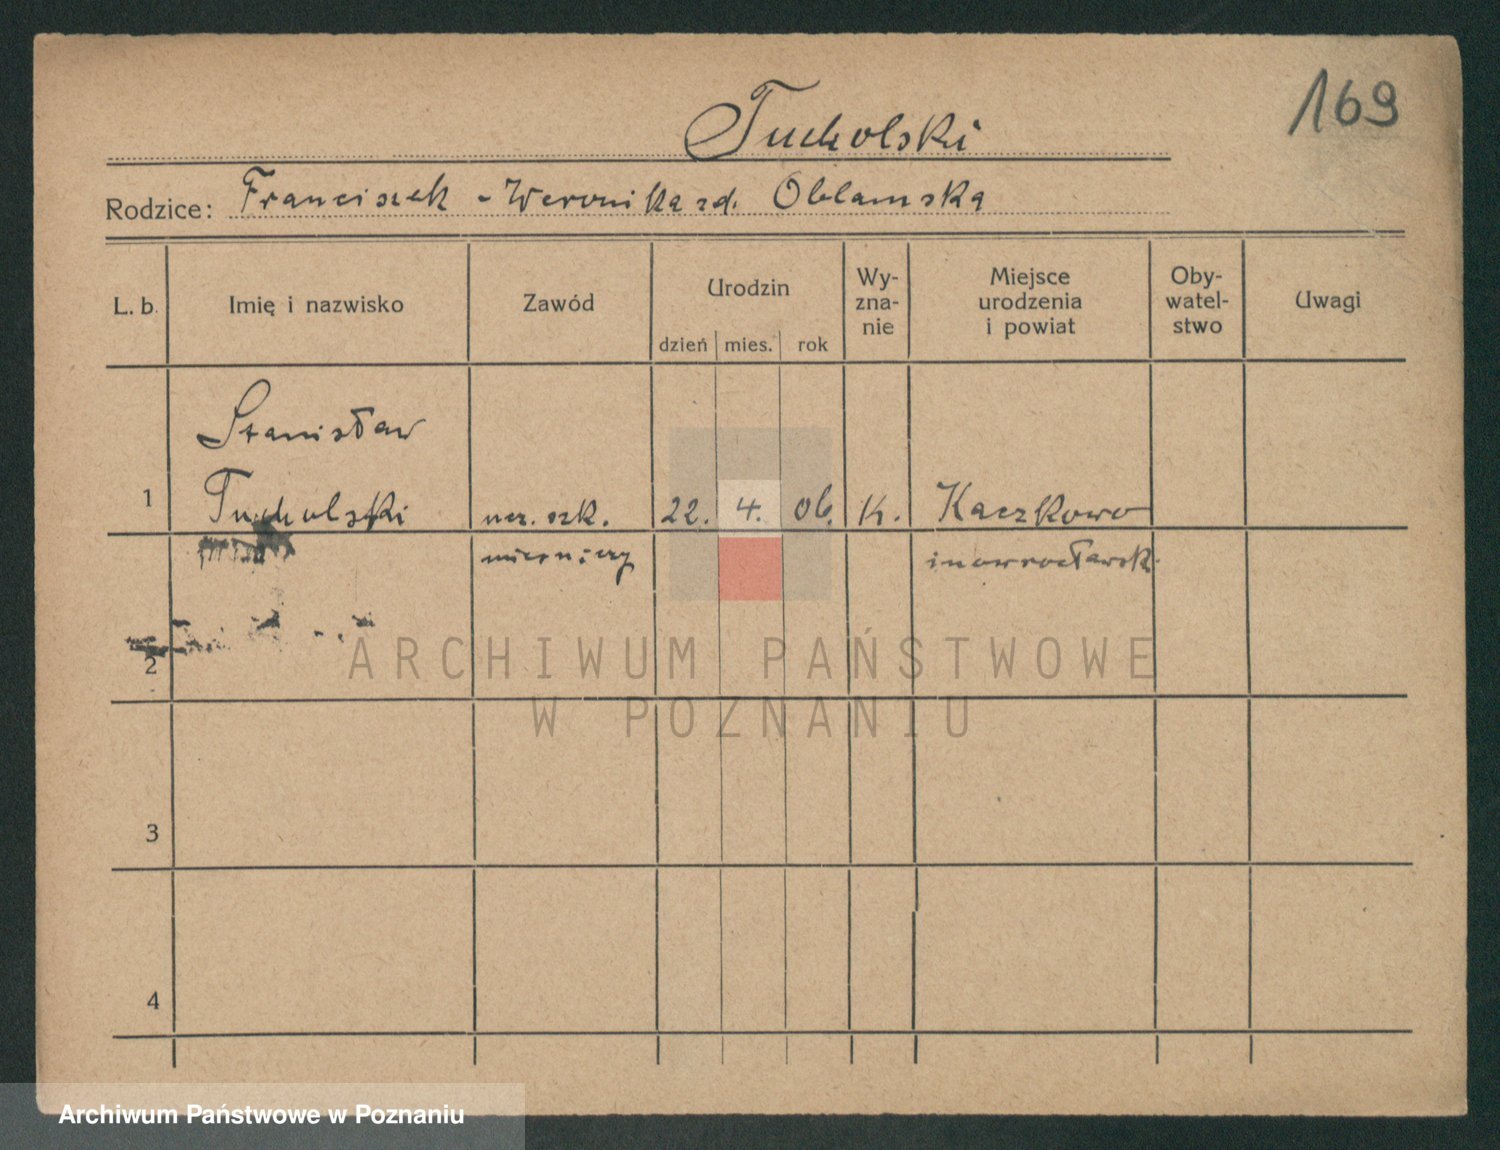 169
Tucholski
Rodzice: Franciszek - Weronika zd. Oblamska
L. b.
Imię i nazwisko
Zawód
Urodzin
dzień mies. rok
Wy-
zna-
nie
Miejsce
urodzenia
i powiat
Oby-
watel-
stwo
Uwagi
Stanisław
1 Tucholski ucz. szk. 22. 4. 06. K. Kaczkowo
mierniczy inowrocławsk.
2
3
4
ARCHIWUM PAŃSTWOWE
W POZNANIU
Archiwum Państwowe w Poznaniu